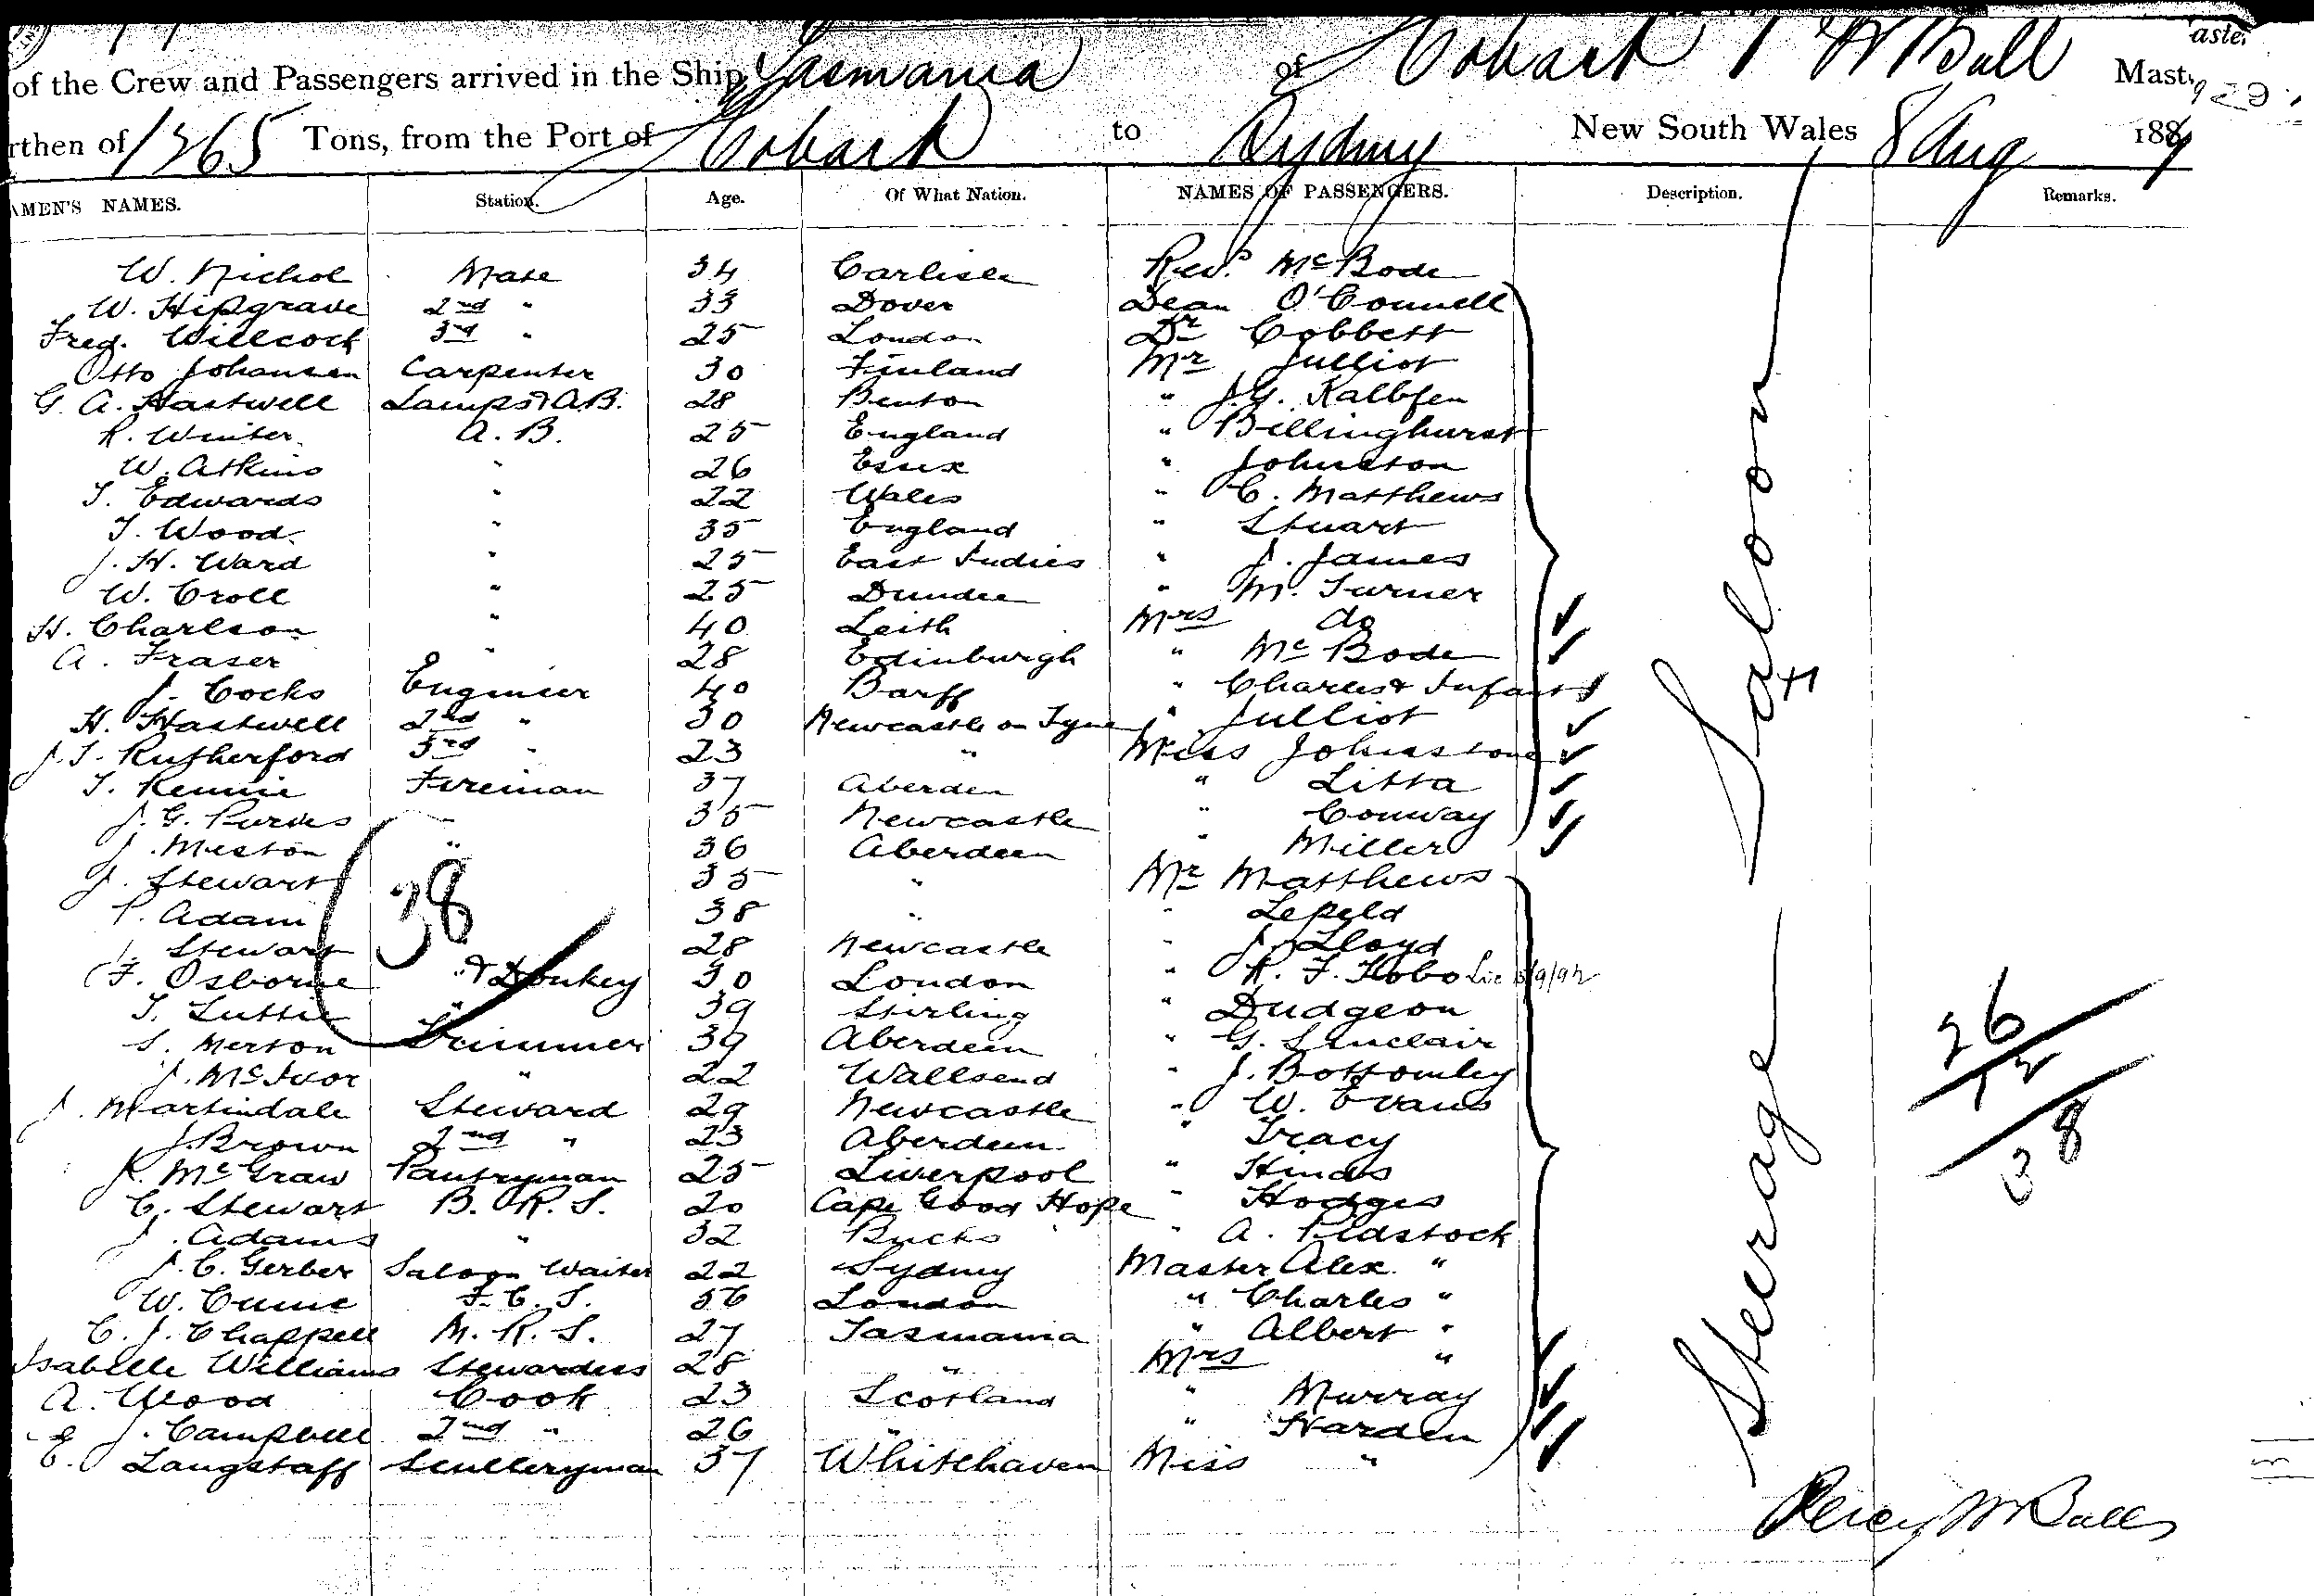 of the Crew and Passengers arrived in the Ship Tasmania of Hobart P W Bull Mast
rthen of 1265 Tons, from the Port of Hobart to Sydney New South Wales 8 Aug 188
AMEN'S NAMES. Station. Age. Of What Nation. NAMES OF PASSENGERS. Description. Remarks.
W. Nichol Mate 34 Carlisle Revd. McBode
W. Hipgrave 2nd " 33 Dover Dean O'Connell
Fred. Willcock 3rd " 25 London Dr Cobbett
Otto Johansen Carpenter 30 Finland Mr Julliot
G. A. Hastwell Lamps & A.B. 28 Benton " J.G. Kalbfen
R. Winter A.B. 25 England " Billinghurst
W. Atkins " 26 Essex " Johnston
T. Edwards " 22 Wales " C. Matthews
T. Wood " 35 England " Stuart
J. H. Ward " 25 East Indies " J. James
W. Croll " 25 Dundee " M. Turner
H. Charlson " 40 Leith Mrs do
A. Fraser " 28 Edinburgh " McBode
J. Cocks Engineer 40 Barff " Charles & Infant
H. Hastwell 2nd " 30 Newcastle on Tyne " Julliot
J. T. Rutherford 3rd " 23 " Miss Johnstone
T. Rennie Fireman 37 Aberdeen " Litta
J. G. Purves " 35 Newcastle " Conway
J. Meston " 36 Aberdeen " Miller
J. Stewart 35 " Mr Matthews
P. Adam 38 " " Lepeld
J. Stewart 28 Newcastle " J. Lloyd
F. Osborne " & Donkey 30 London " R. F. Hobo
T. Luttie " 39 Stirling " Dudgeon
S. Merton Trimmer 39 Aberdeen " G. Sinclair
J. McIvor " 22 Wallsend " J. Bottomley
J. Martindale Steward 29 Newcastle " W. Evans
J. Brown 2nd " 23 Aberdeen " Tracy
R. McGraw Pantryman 25 Liverpool " Hinds
C. Stewart B. R. S. 20 Cape Good Hope " Hodges
J. Adams " 32 Bucks " A. Pidstock
J. C. Gerber Saloon Waiter 22 Sydney Master Alex. "
W. Cume F. C. S. 56 London " Charles "
C. J. Chappell M. R. S. 27 Tasmania " Albert "
Isabelle Williams Stewardess 28 " Mrs "
A. Wood Cook 23 Scotland " Murray
J. Campbell 2nd " 26 " " Harden
E. Langstaff Sculleryman 37 Whitehaven Miss "
38
Saloon
Steerage
26
12
38
Percy W Bull